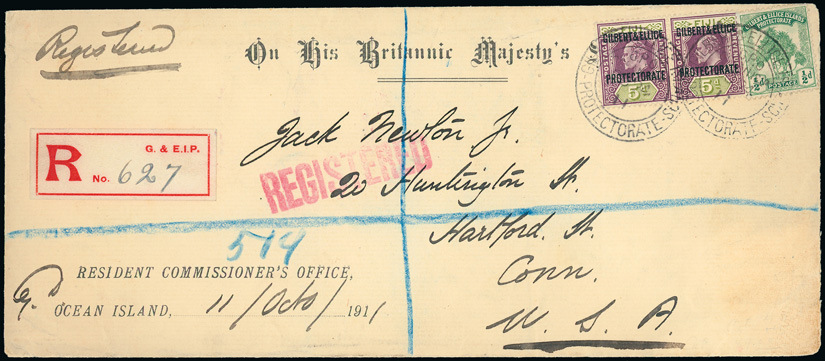 Registered
On His Britannic Majesty's
FIJI
GILBERT & ELLICE
PROTECTORATE
5d
FIJI
GILBERT & ELLICE
PROTECTORATE
5d
GILBERT & ELLICE ISLANDS
PROTECTORATE
½d POSTAGE ½d
PROTECTORATE
R
G. & E.I.P.
No. 627
REGISTERED
Jack Newton Jr.
20 Huntington St.
Hartford. St.
Conn.
U. S. A.
519
RESIDENT COMMISSIONER'S OFFICE,
OCEAN ISLAND, 11/Octo/ 1911